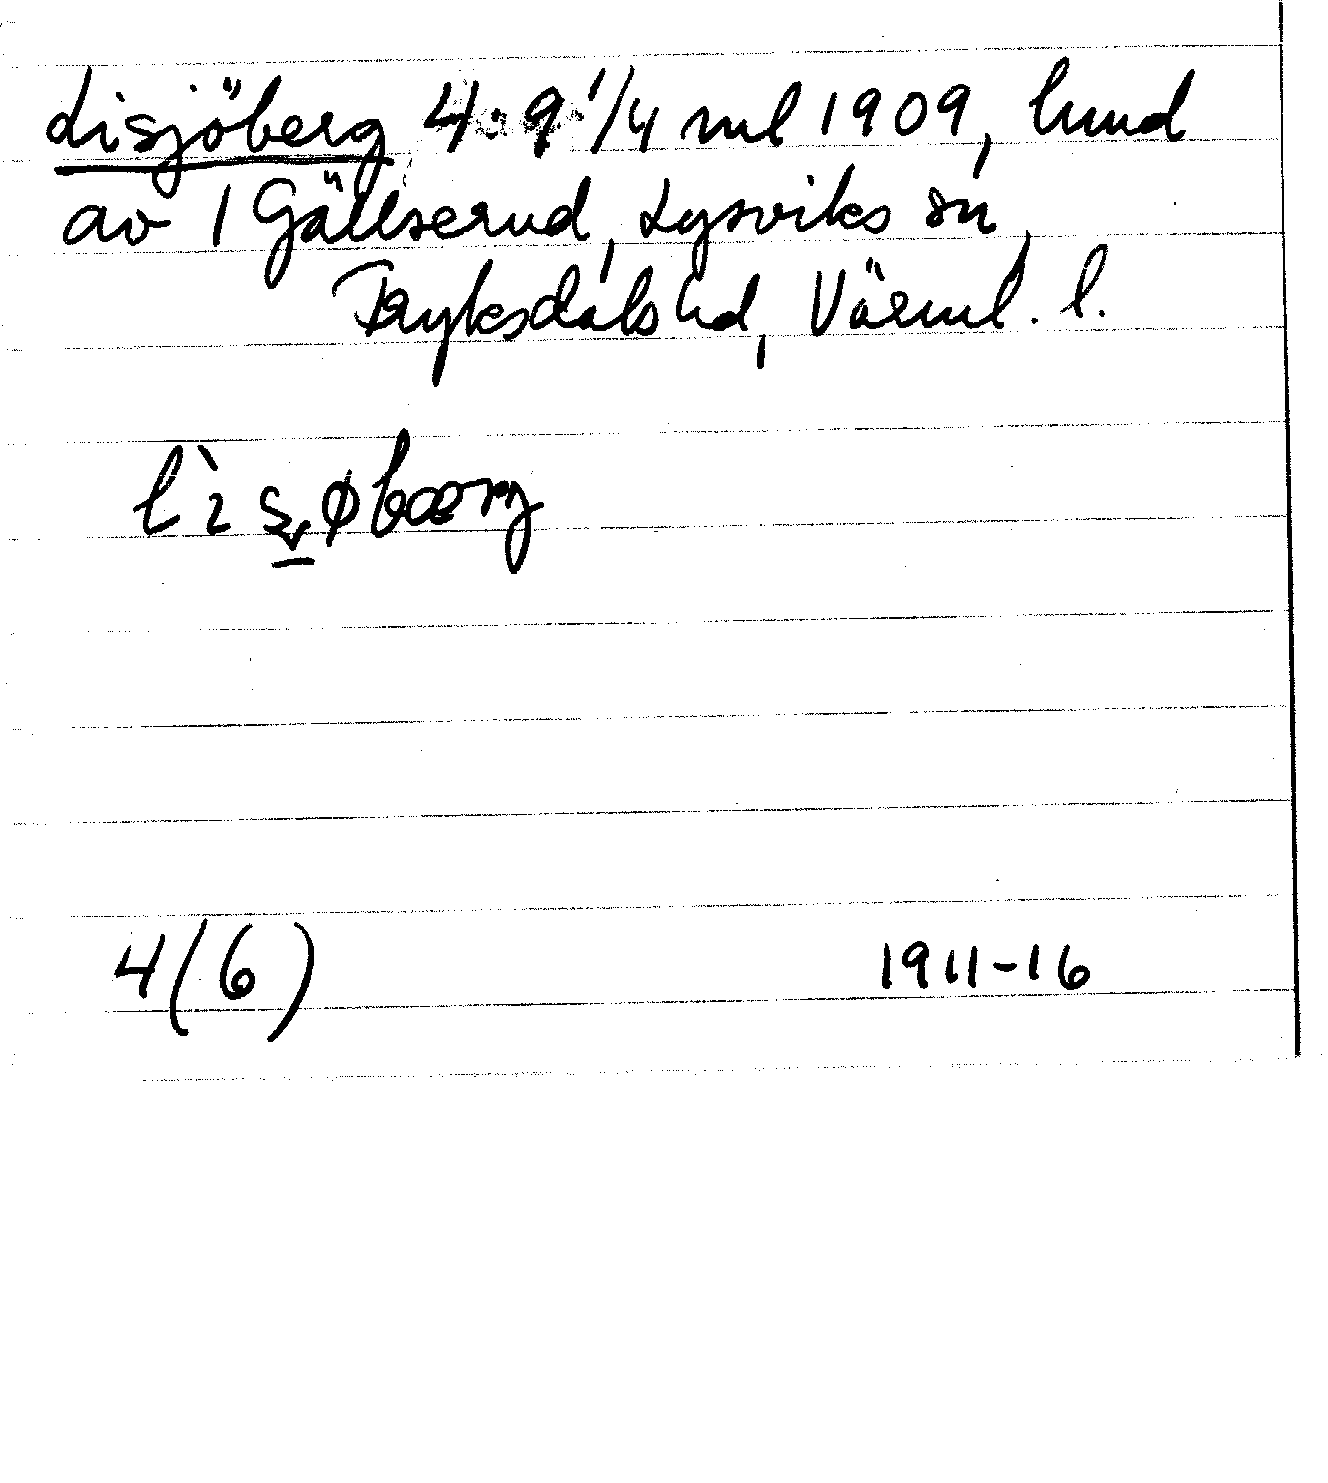 Lisjöberg 4:9 1/4 ml 1909, lund
av 1 Gällserud, Lysviks sn,
Fryksdals hd, Värml. l.
lì ꞩøbærg
4(6) 1911-16